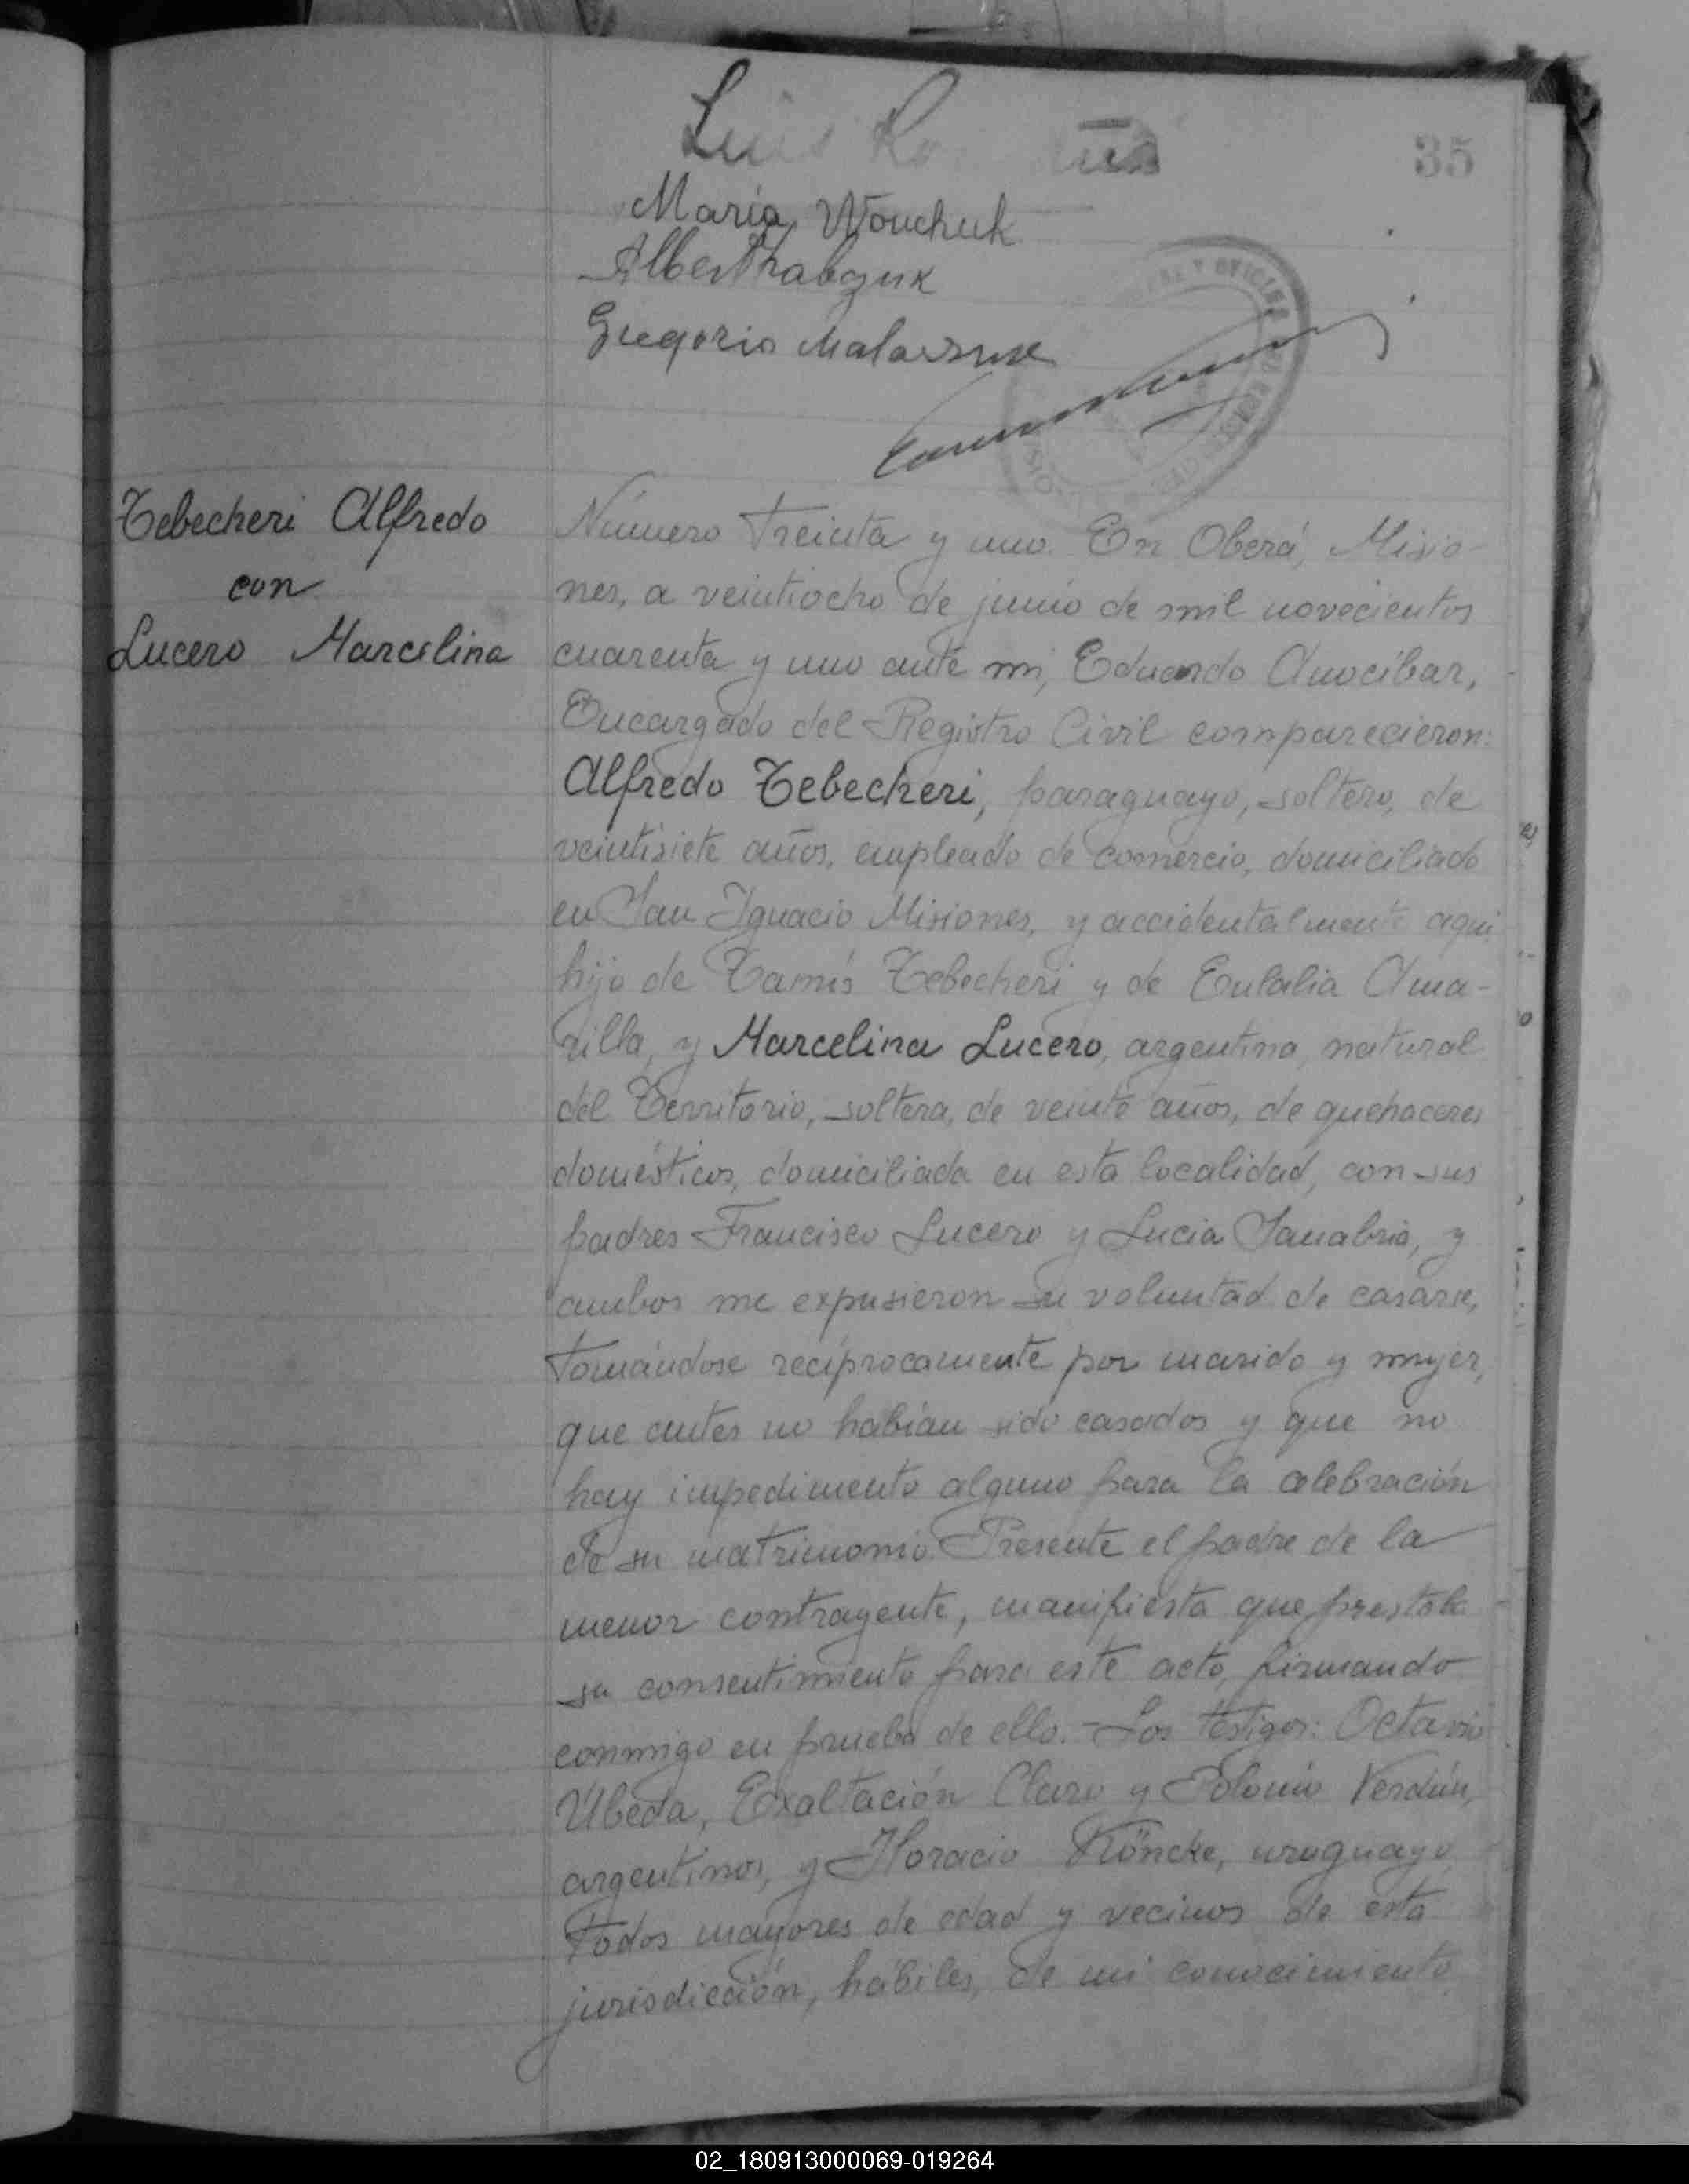 Luis
35
Maria Wouchuk
Gregorio
Tebecheri Alfredo
con
Lucero Marcelina
Número treinta y uno. En Oberá, Misio-
nes, a veintiocho de junio de mil novecientos
cuarenta y uno ante mi, Eduardo Anocibar,
Encargado del Registro Civil comparecieron:
Alfredo Tebecheri, paraguayo, soltero, de
veintisiete años, empleado de comercio, domiciliado
en San Ignacio Misiones, y accidentalmente aqui
hijo de Tamís Tebecheri y de Eulalia Ama-
rilla, y Marcelina Lucero, argentina, natural
del Territorio, soltera, de veinte años, de quehaceres
domésticos, domiciliada en esta localidad, con sus
padres Francisco Lucero y Lucia Sanabria, y
ambos me expusieron su voluntad de casarse,
tomándose recíprocamente por marido y mujer,
que antes no habían sido casados y que no
hay impedimento alguno para la celebración
de su matrimonio. Presente el padre de la
menor contrayente, manifiesta que presta
su consentimiento para este acto, firmando
conmigo en prueba de ello.- Los testigos: Octavio
Ubeda, Exaltación Claro y Polonio Verdún,
argentinos, y Horacio Köncke, uruguayo,
todos mayores de edad y vecinos de esta
jurisdicción, hábiles, de mi conocimiento
02_180913000069-019264